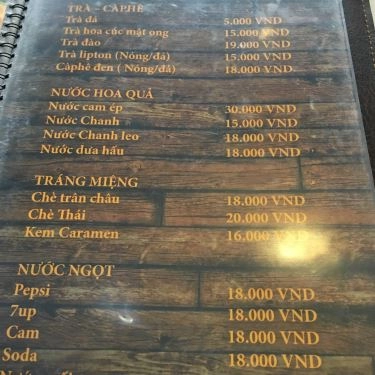 TRÀ - CÀPHÊ
Trà đá 5.000 VND
Trà hoa cúc mật ong 15.000 VND
Trà đào 19.000 VND
Trà lipton (Nóng/đá) 15.000 VND
Càphê đen ( Nóng/đá) 18.000 VND
NƯỚC HOA QUẢ
Nước cam ép 30.000 VND
Nước Chanh 15.000 VND
Nước Chanh leo 18.000 VND
Nước dưa hấu 18.000 VND
TRÁNG MIỆNG
Chè trân châu 18.000 VND
Chè Thái 20.000 VND
Kem Caramen 16.000 VND
NƯỚC NGỌT
Pepsi 18.000 VND
7up 18.000 VND
Cam 18.000 VND
Soda 18.000 VND